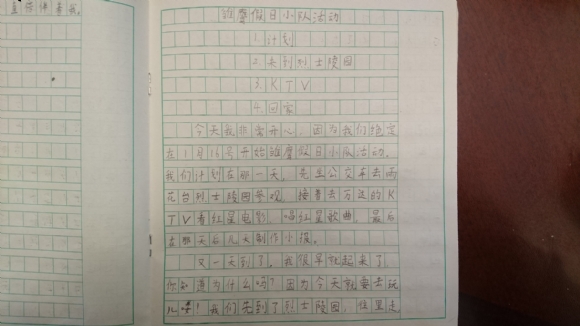 直陪伴着我。
雏鹰假日小队活动
1.计划
2.去到烈士陵园
3.KTV
4.回家
今天我非常开心,因为我们绝定
在1月16号开始雏鹰假日小队活动。
我们计划在那一天,先坐公交车去雨
花台烈士陵园参观,接着去万达的K
TV看红星电影、唱红星歌曲,最后
在那天后几天制作小报。
又一天到了,我很早就起来了,
你知道为什么吗?因为今天就要去玩
儿啦!我们先到了烈士陵园,往里走